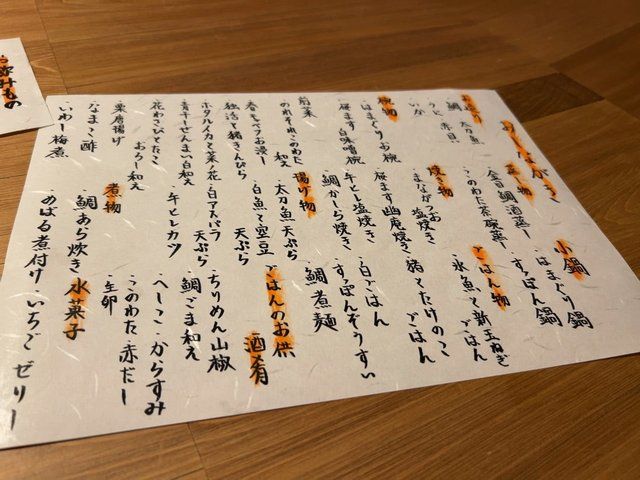 おしながき
お造り
鯛 太刀魚
うに 赤貝
いか
椀物
・はまぐりお椀
・桜ます 白味噌椀
前菜
・のれそれこのわた和え
・春キャベツお浸し
・独活と鶏きんぴら
・ホタルイカと菜の花
・青干ぜんまい白和え
・花わさびとたこ
おろし和え
・栗唐揚げ
・なまこ酢
・いわし梅煮
蒸し物
・金目鯛酒蒸し
・このわた茶碗蒸し
焼き物
・まながつお塩焼き
・桜ます幽庵焼き
・牛ヒレ塩焼き
・鯛かしら焼き
揚げ物
・太刀魚天ぷら
・白魚と空豆
天ぷら
・白アスパラ
天ぷら
・牛ヒレカツ
煮物
・鯛あら炊き
・めばる煮付け
小鍋
・はまぐり鍋
・すっぽん鍋
ごはん物
・氷魚と新玉ねぎ
ごはん
・猪とたけのこ
ごはん
・白ごはん
・すっぽんぞうすい
・鯛煮麺
ごはんのお供
酒肴
・ちりめん山椒
・鯛ごま和え
・へしこ・からすみ
・このわた 赤だし
・生卵
水菓子
・いちご ゼリー
飲みもの